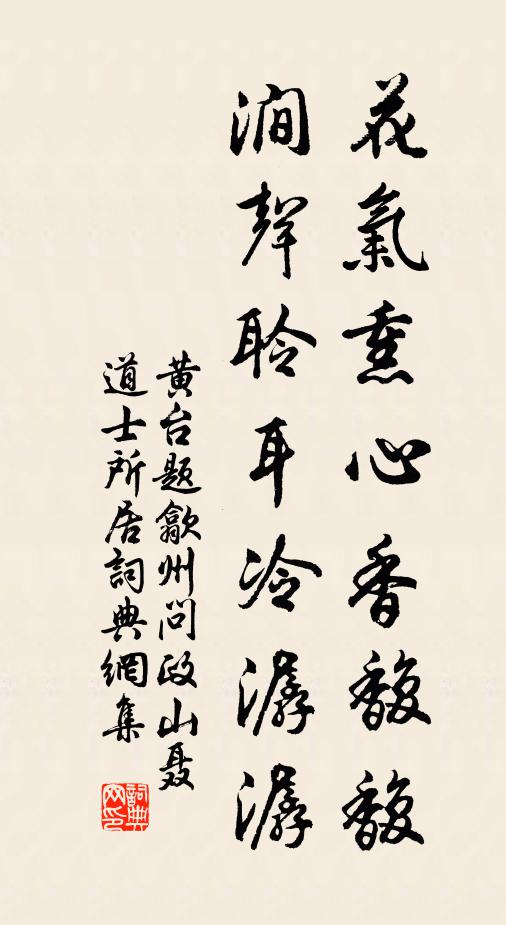 花氣熏心香馥馥
澗聲聆耳冷潺潺
黄台题歙州问政山聂
道士所居詞典網集
詞典网印